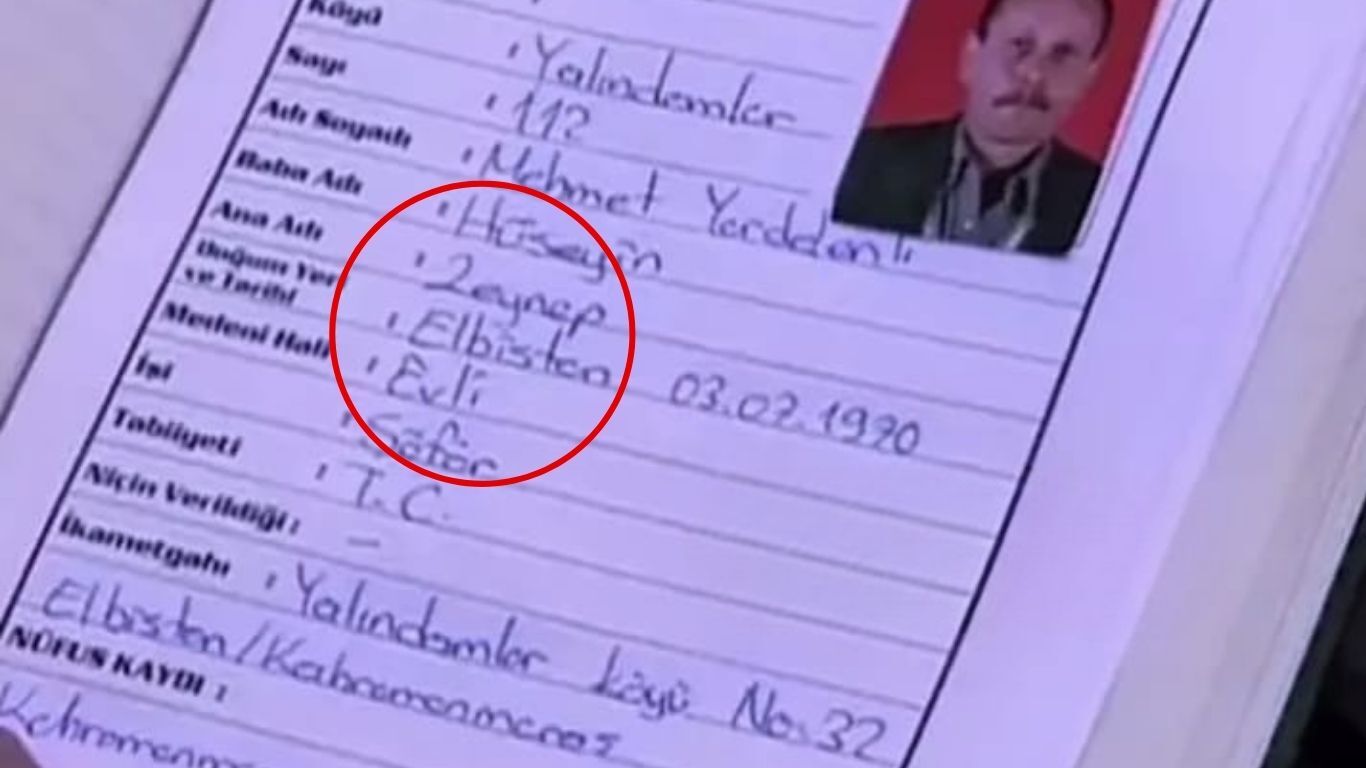 Köyü : Yalındamlar
Sayı : 112
Adı Soyadı : Mehmet Yarddanlı
Baba Adı : Hüseyin
Ana Adı : Zeynep
Doğum Yer
ve Tarihi : Elbistan 03.07.1970
Medeni Hali : Evli
İşi : Şöför
Tabiiyeti : T.C.
Niçin Verildiği : -
İkametgahı : Yalındamlar köyü No:32
Elbistan/Kahramanmaraş
NÜFUS KAYDI :